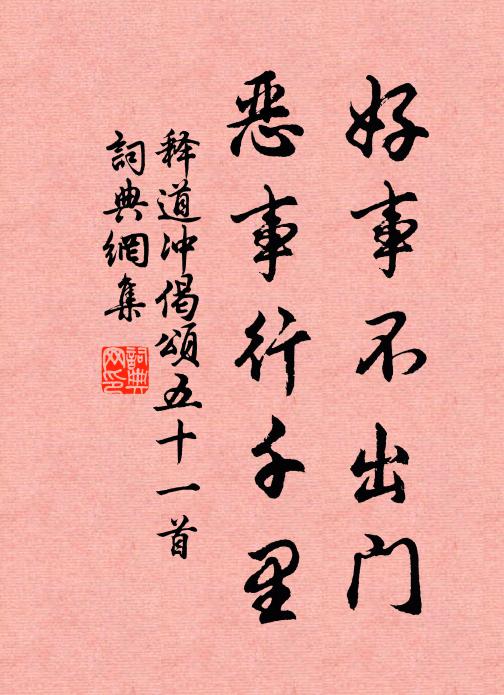 好事不出门
恶事行千里
释道冲偈颂五十一首
词典网集
词典网印